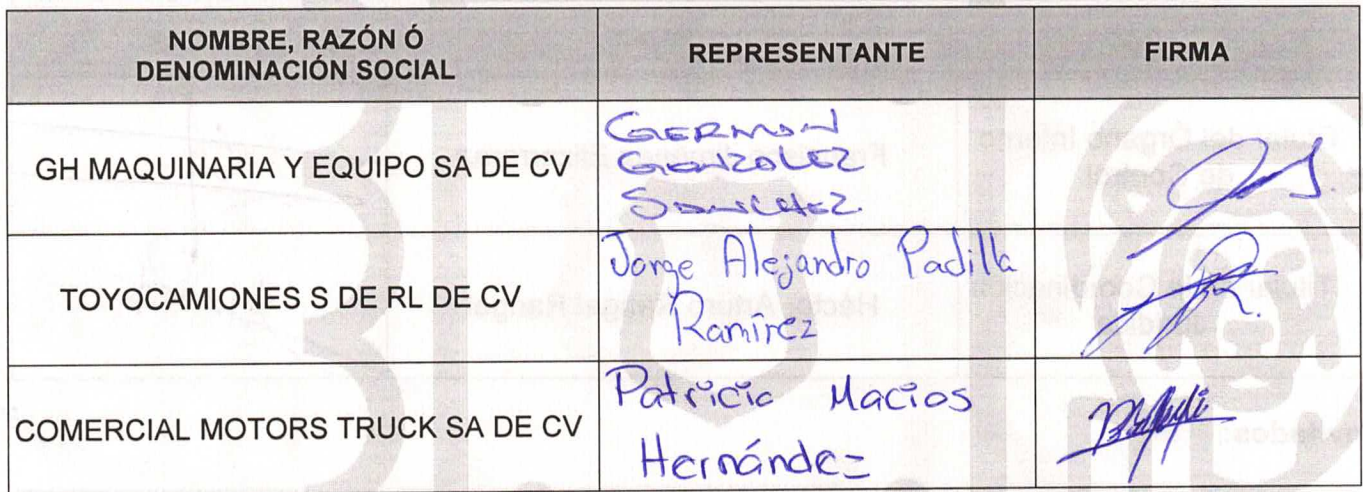 NOMBRE, RAZÓN Ó
DENOMINACIÓN SOCIAL
REPRESENTANTE
FIRMA
GH MAQUINARIA Y EQUIPO SA DE CV
GERMAN
GONZALEZ
SANCHEZ
TOYOCAMIONES S DE RL DE CV
Jorge Alejandro Padilla
Ramírez
COMERCIAL MOTORS TRUCK SA DE CV
Patricia Macias
Hernández